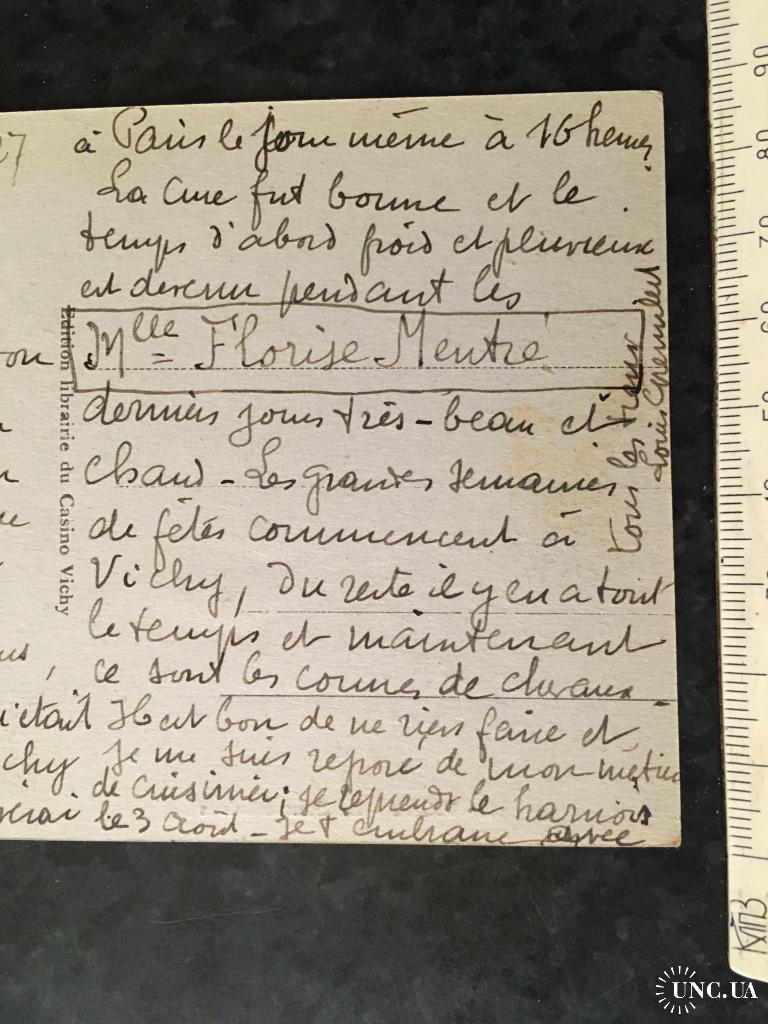 27
à Paris le jour même à 16 heures
La Cure fut bonne et le
temps d'abord froid et pluvieux
est devenu pendant les
on
Mlle = Florise Mentré
derniers jours très-beau et
chaud - Les grandes semaines
de fêtes commencent à
Vichy, du reste il y en a tout
le temps et maintenant
us, ce sont les courses de chevaux -
c'était Il est bon de ne rien faire et
chy je me suis reposé de mon métier
de cuisinier; je reprends le harnois
serai le 3 Août - Je t'embrasse avec
tous les
Louis
Edition librairie du Casino Vichy
90
80
70
60
50
40
UNC.UA